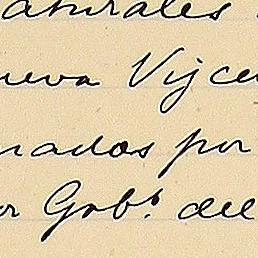 aturales
ueva Vizca
nados por
or Gobr. del